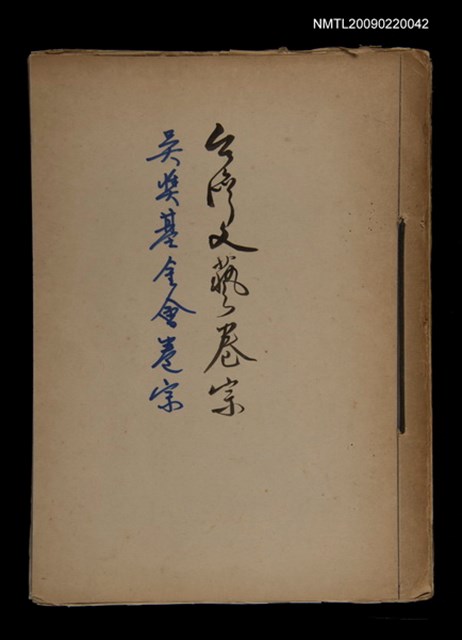 NMTL20090220042
台灣文藝卷宗
吳獎基金會卷宗